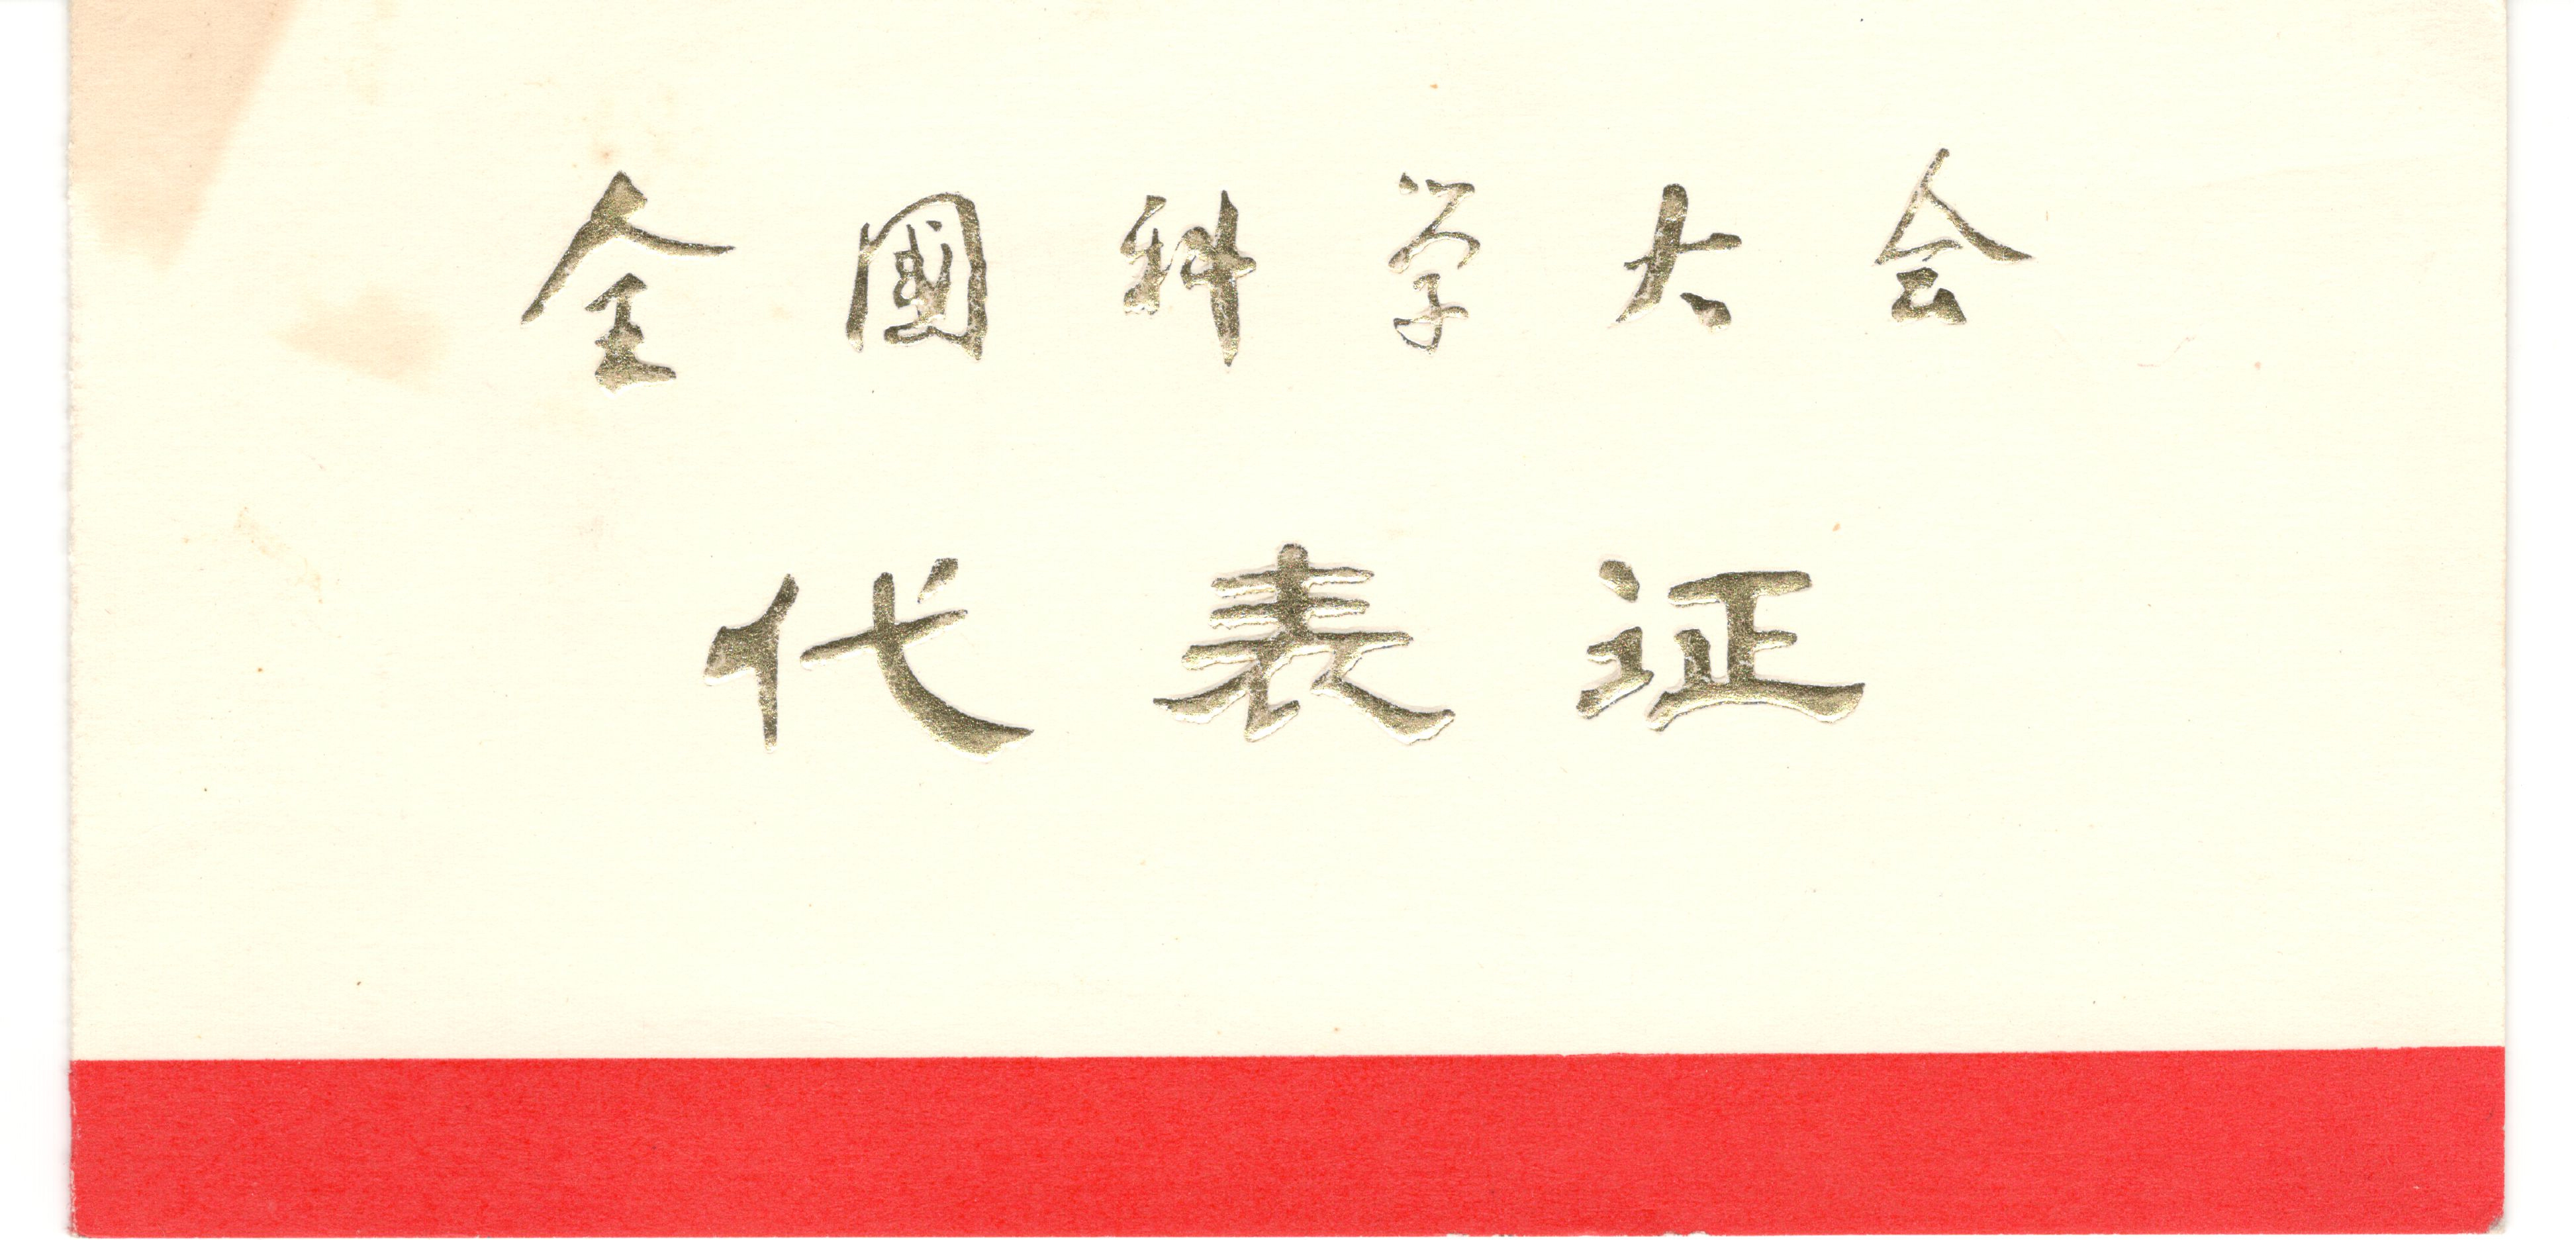 全國科学大会
代表证